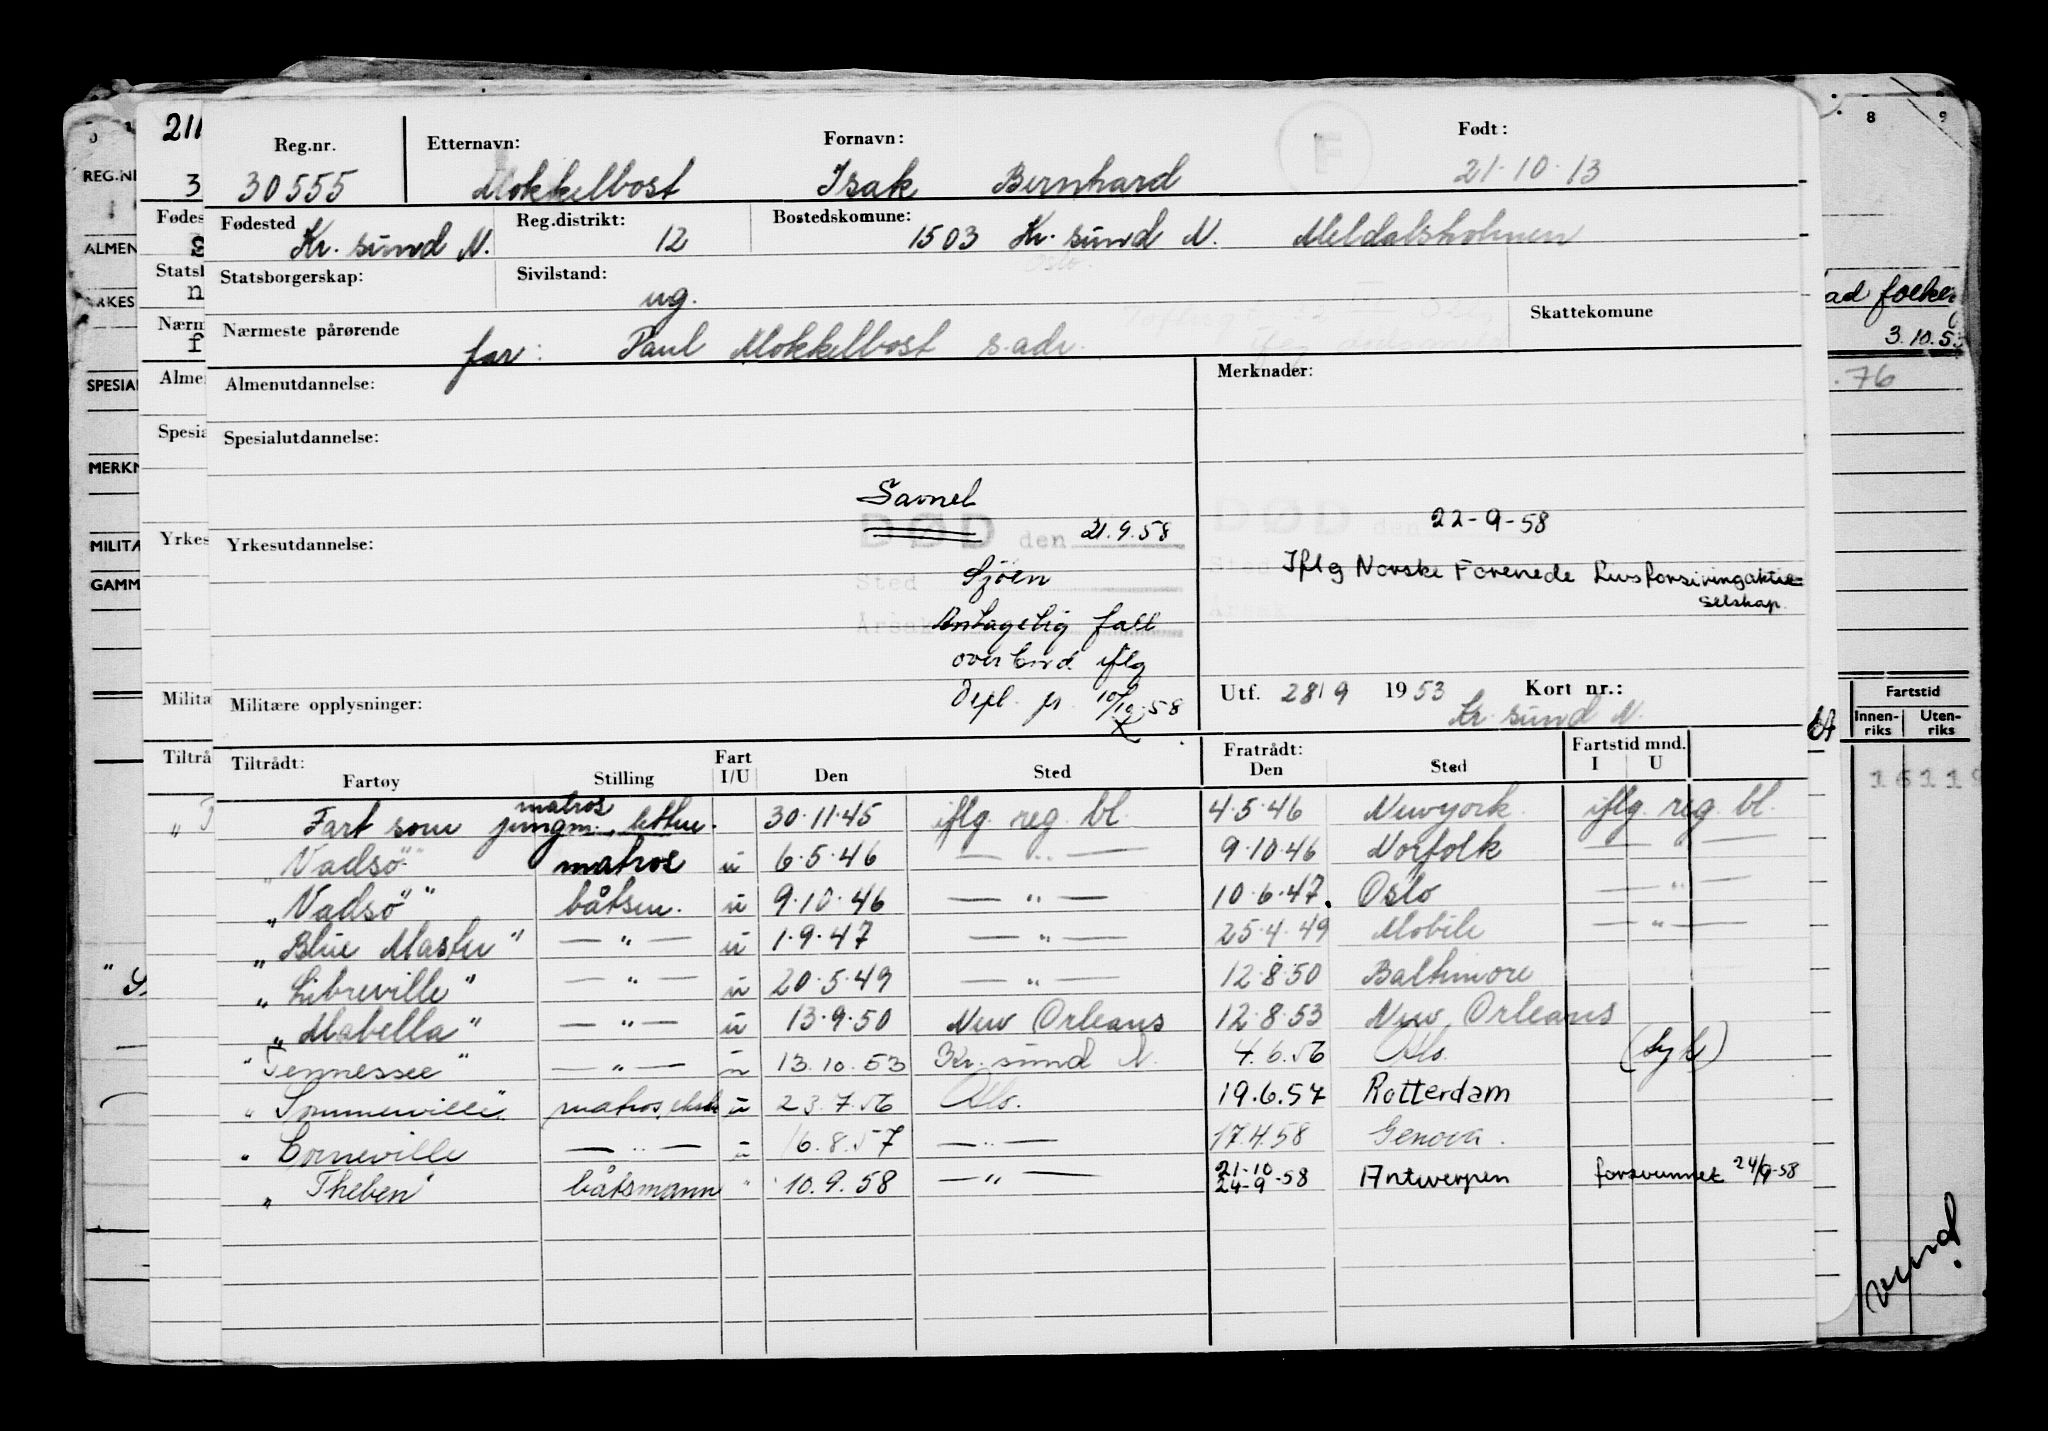 211
Reg.nr. Etternavn: Fornavn: Født:
30555 Mokkelbost Isak Bernhard 21-10-13
F
Fødested Reg.distrikt: Bostedskomune:
Kr. sund N. 12 1503 Kr. sund N. Meldalsholmen
Oslo.
Statsborgerskap: Sivilstand: Skattekomune
ug.
Nærmeste pårørende
far: Paul Mokkelbost s.adr.
Almenutdannelse: Merknader:
Spesialutdannelse:
Savnet
DØD den 21.9.58 DØD den 22-9-58
Yrkesutdannelse:
Sted Sjøen Sted Iflg Norske Forenede Livsforsikringaktie=
selskap.
Årsak Antagelig fall Årsak
overbord iflg
Militære opplysninger: Depl. pr. 10/10-58
Utf. 28/9 1953 Kort nr.:
Kr. sund N.
Tiltrådt: Fart Fratrådt: Fartstid mnd.
Fartøy Stilling I/U Den Sted Den Sted I U
Fart som jungm. matros, lettm. 30.11.45 iflg. reg. bl. 4.5.46 Newyork. iflg. reg. bl.
"Vadsö" matros u 6.5.46 — " — 9.10.46 Norfolk — " —
"Vadsö" båtsm. u 9.10.46 — " — 10.6.47. Oslo — " —
"Blue Master" — " — u 1.9.47 — " — 25.4.49 Mobile — " —
"Libreville" — " — u 20.5.49 — " — 12.8.50 Baltimore
"Mabella" — " — u 13.9.50 New Orleans 12.8.53 New Orleans
"Tennessee" — " — u 13.10.53 Kr. sund N. 4.6.56 Oslo. (syk)
"Sommerville" matros, ekstr u 23.7.56 Oslo. 19.6.57 Rotterdam
" Corneville — " — u 16.8.57 — " — 17.4.58 Genova.
"Theben" båtsmann " 10.9.58 — " — 21-10 24-9-58 Antwerpen forsvunnet 24/9-58
8 9
REG.NR
ALMEN
SPESIAL
MERKN
MILITÆ
GAMM
3.10.53
.76
Fartstid
Innen-riks Uten-riks